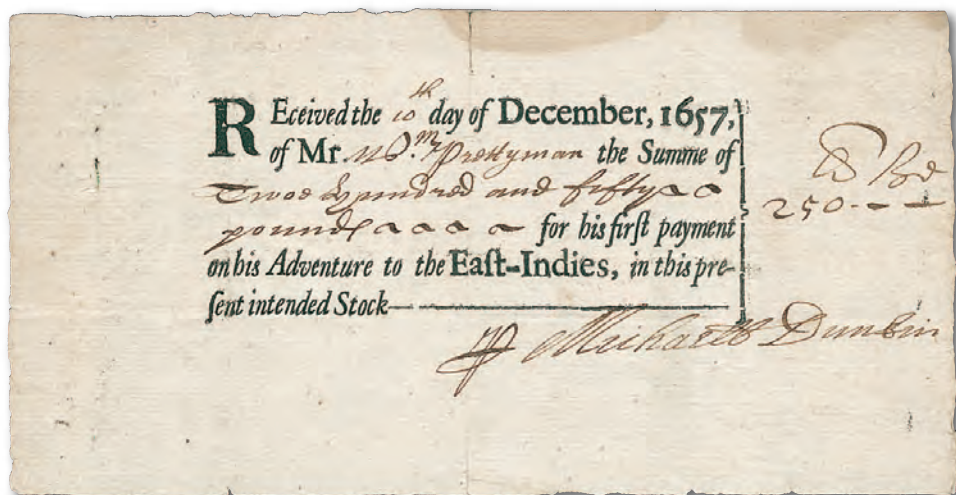 REceived the 10th day of December, 1657,
of Mr. Wm. Prettyman the Summe of
Twoe Hundred and fifty
pounds for his firſt payment
on his Adventure to the Eaſt-Indies, in this pre-
ſent intended Stock
250
Michaell Dunkin